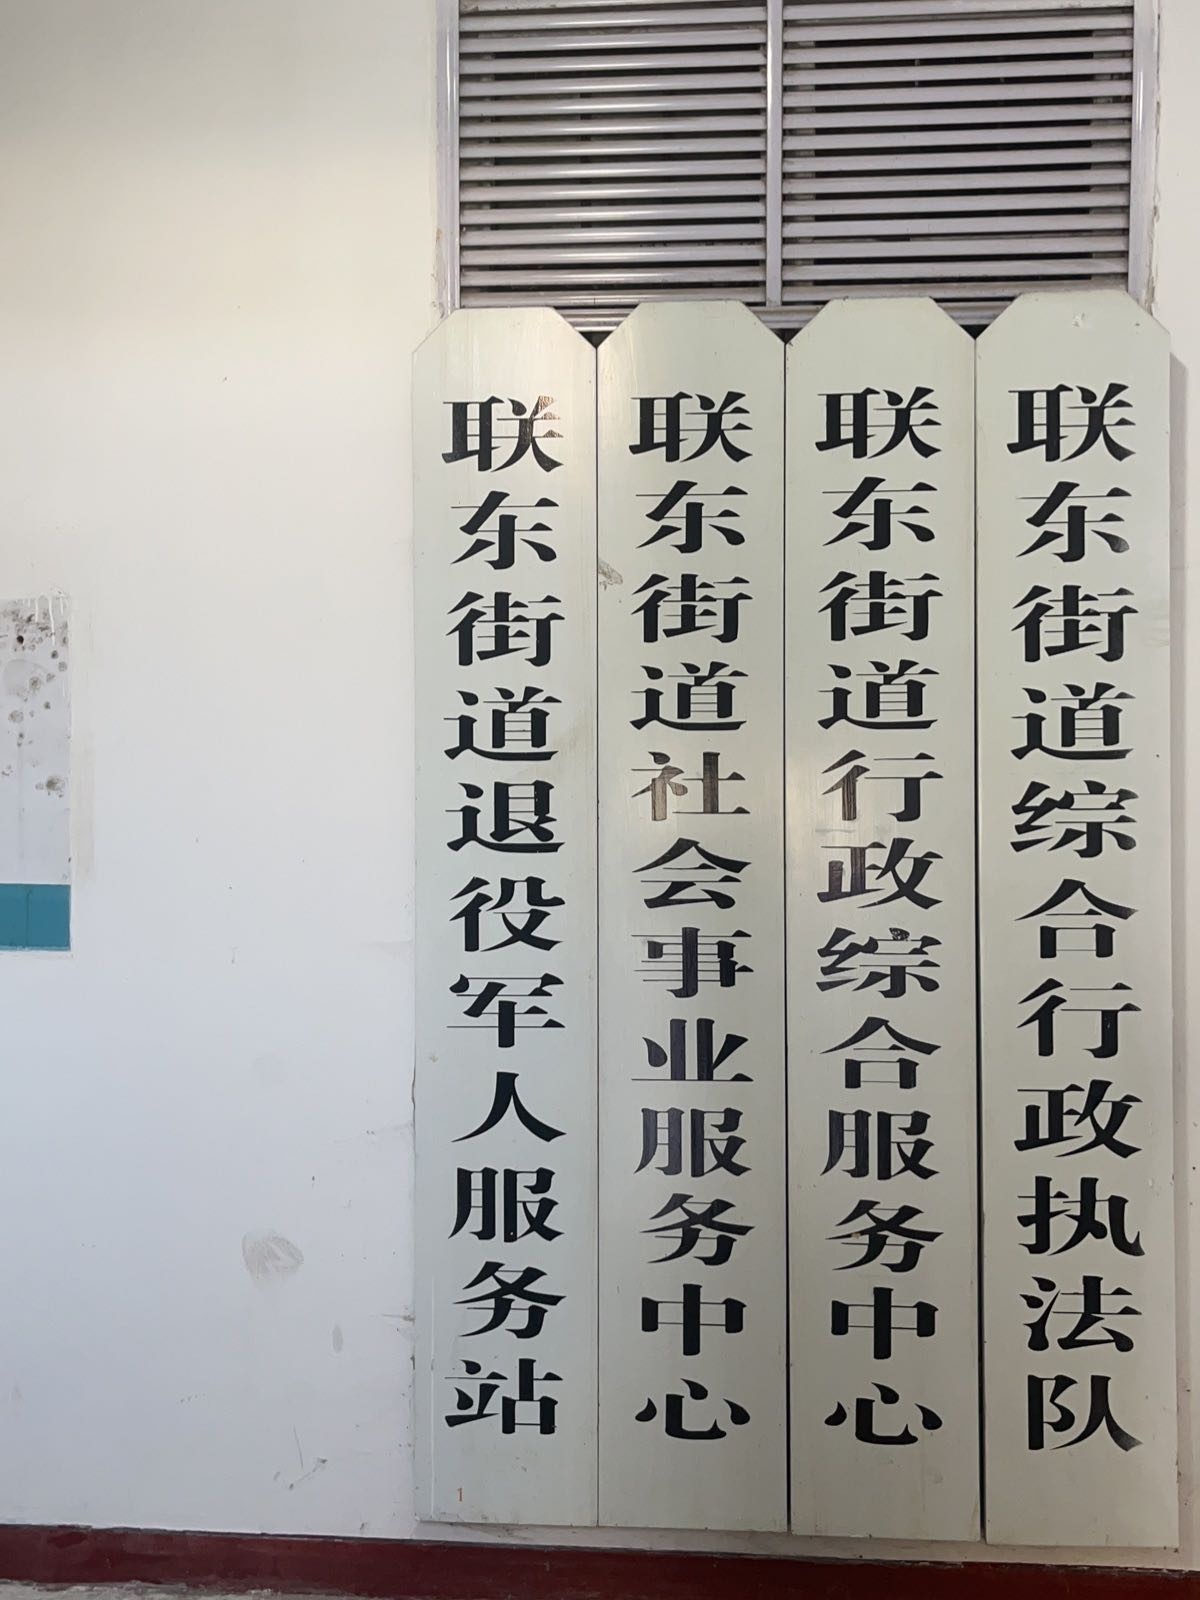 联东街道退役军人服务站
联东街道社会事业服务中心
联东街道行政综合服务中心
联东街道综合行政执法队
1